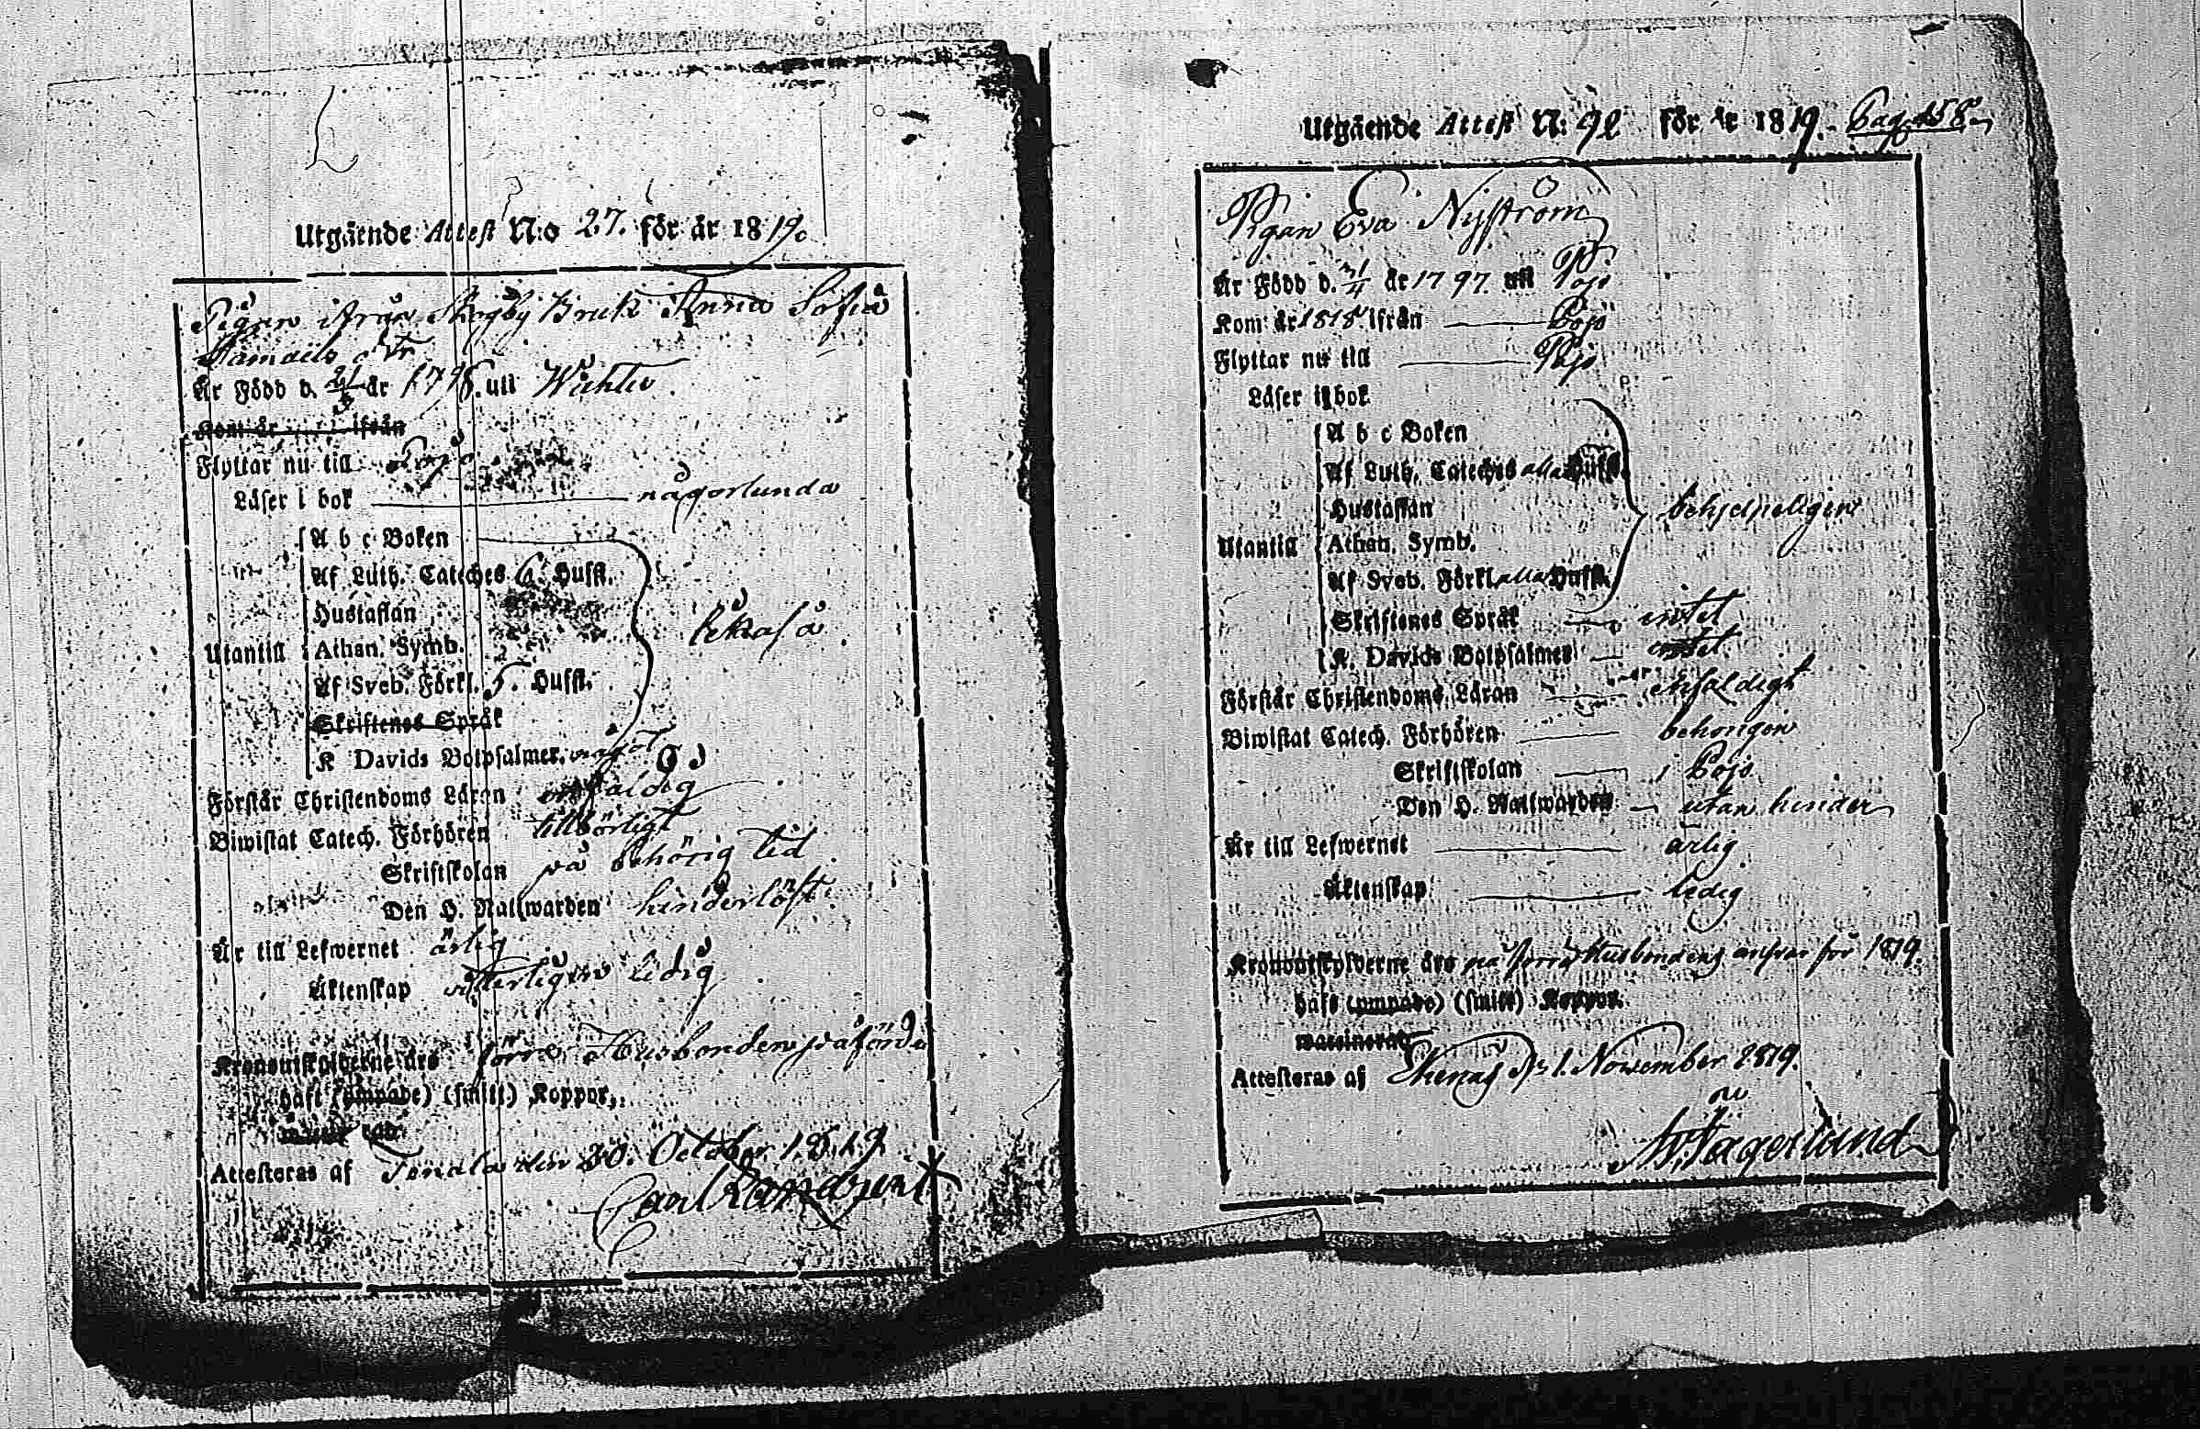 Utgående Attest N:o 27. för år 1819.
Pigan ifrån Skogby Bruk Anna Sofia
Är Född d. 21 år 1798. uti Wichtis
Kom år ifrån
Flyttar nu till Pojo
Läser i bok någorlunda
A b c Boken
Af Luth. Cateches 6. Hufst.
Hustaflan
Utantill Athan. Symb. likaså
Af Sveb. Förkl. 5. Hufst.
Skriftenes Språk
K Davids Botpsalmer. något
Förstår Christendoms Läran enfaldig
Biwistat Catech. Förhören tillbörligt
Skriftskolan på behörig tid
Den H. Nattwarden hinderlöst.
Är till Lefwernet ärlig
Äktenskap witterligen ledig
Kronoutskylderne äro förre Husbonden påförde
haft (ympade) (smitt) Koppor,
Attesteras af Tenala den 30. October 1819.
Utgående Attest N: 92 för År 1819. Pag. 158.
Pigan Eva Nyström
Är Född d. 21/4 år 1797. uti Pojo
Kom år 1818 ifrån Pojo
Flyttar nu till Pojo
Läser i bok
A b c Boken
Af Luth. Cateches alla Hufst.
Hustaflan behjelpeligen
Utantill Athan. Symb.
Af Sveb. Förkl. alla Hufst.
Skriftenes Språk intet
K. Davids Botpsalmer intet
Förstår Christendoms Läran enfaldigt
Biwistat Catech. Förhören behörigen
Skriftskolan i Pojo
Den H. Nattwarden utan hinder
Är till Lefwernet ärlig
Äktenskap ledig
Kronoutskylderne äro på förra Husbondens answar för 1819.
haft (ympade) (smitt) Koppor.
waccinerad
Attesteras af Ekenäs d. 1. November 1819.